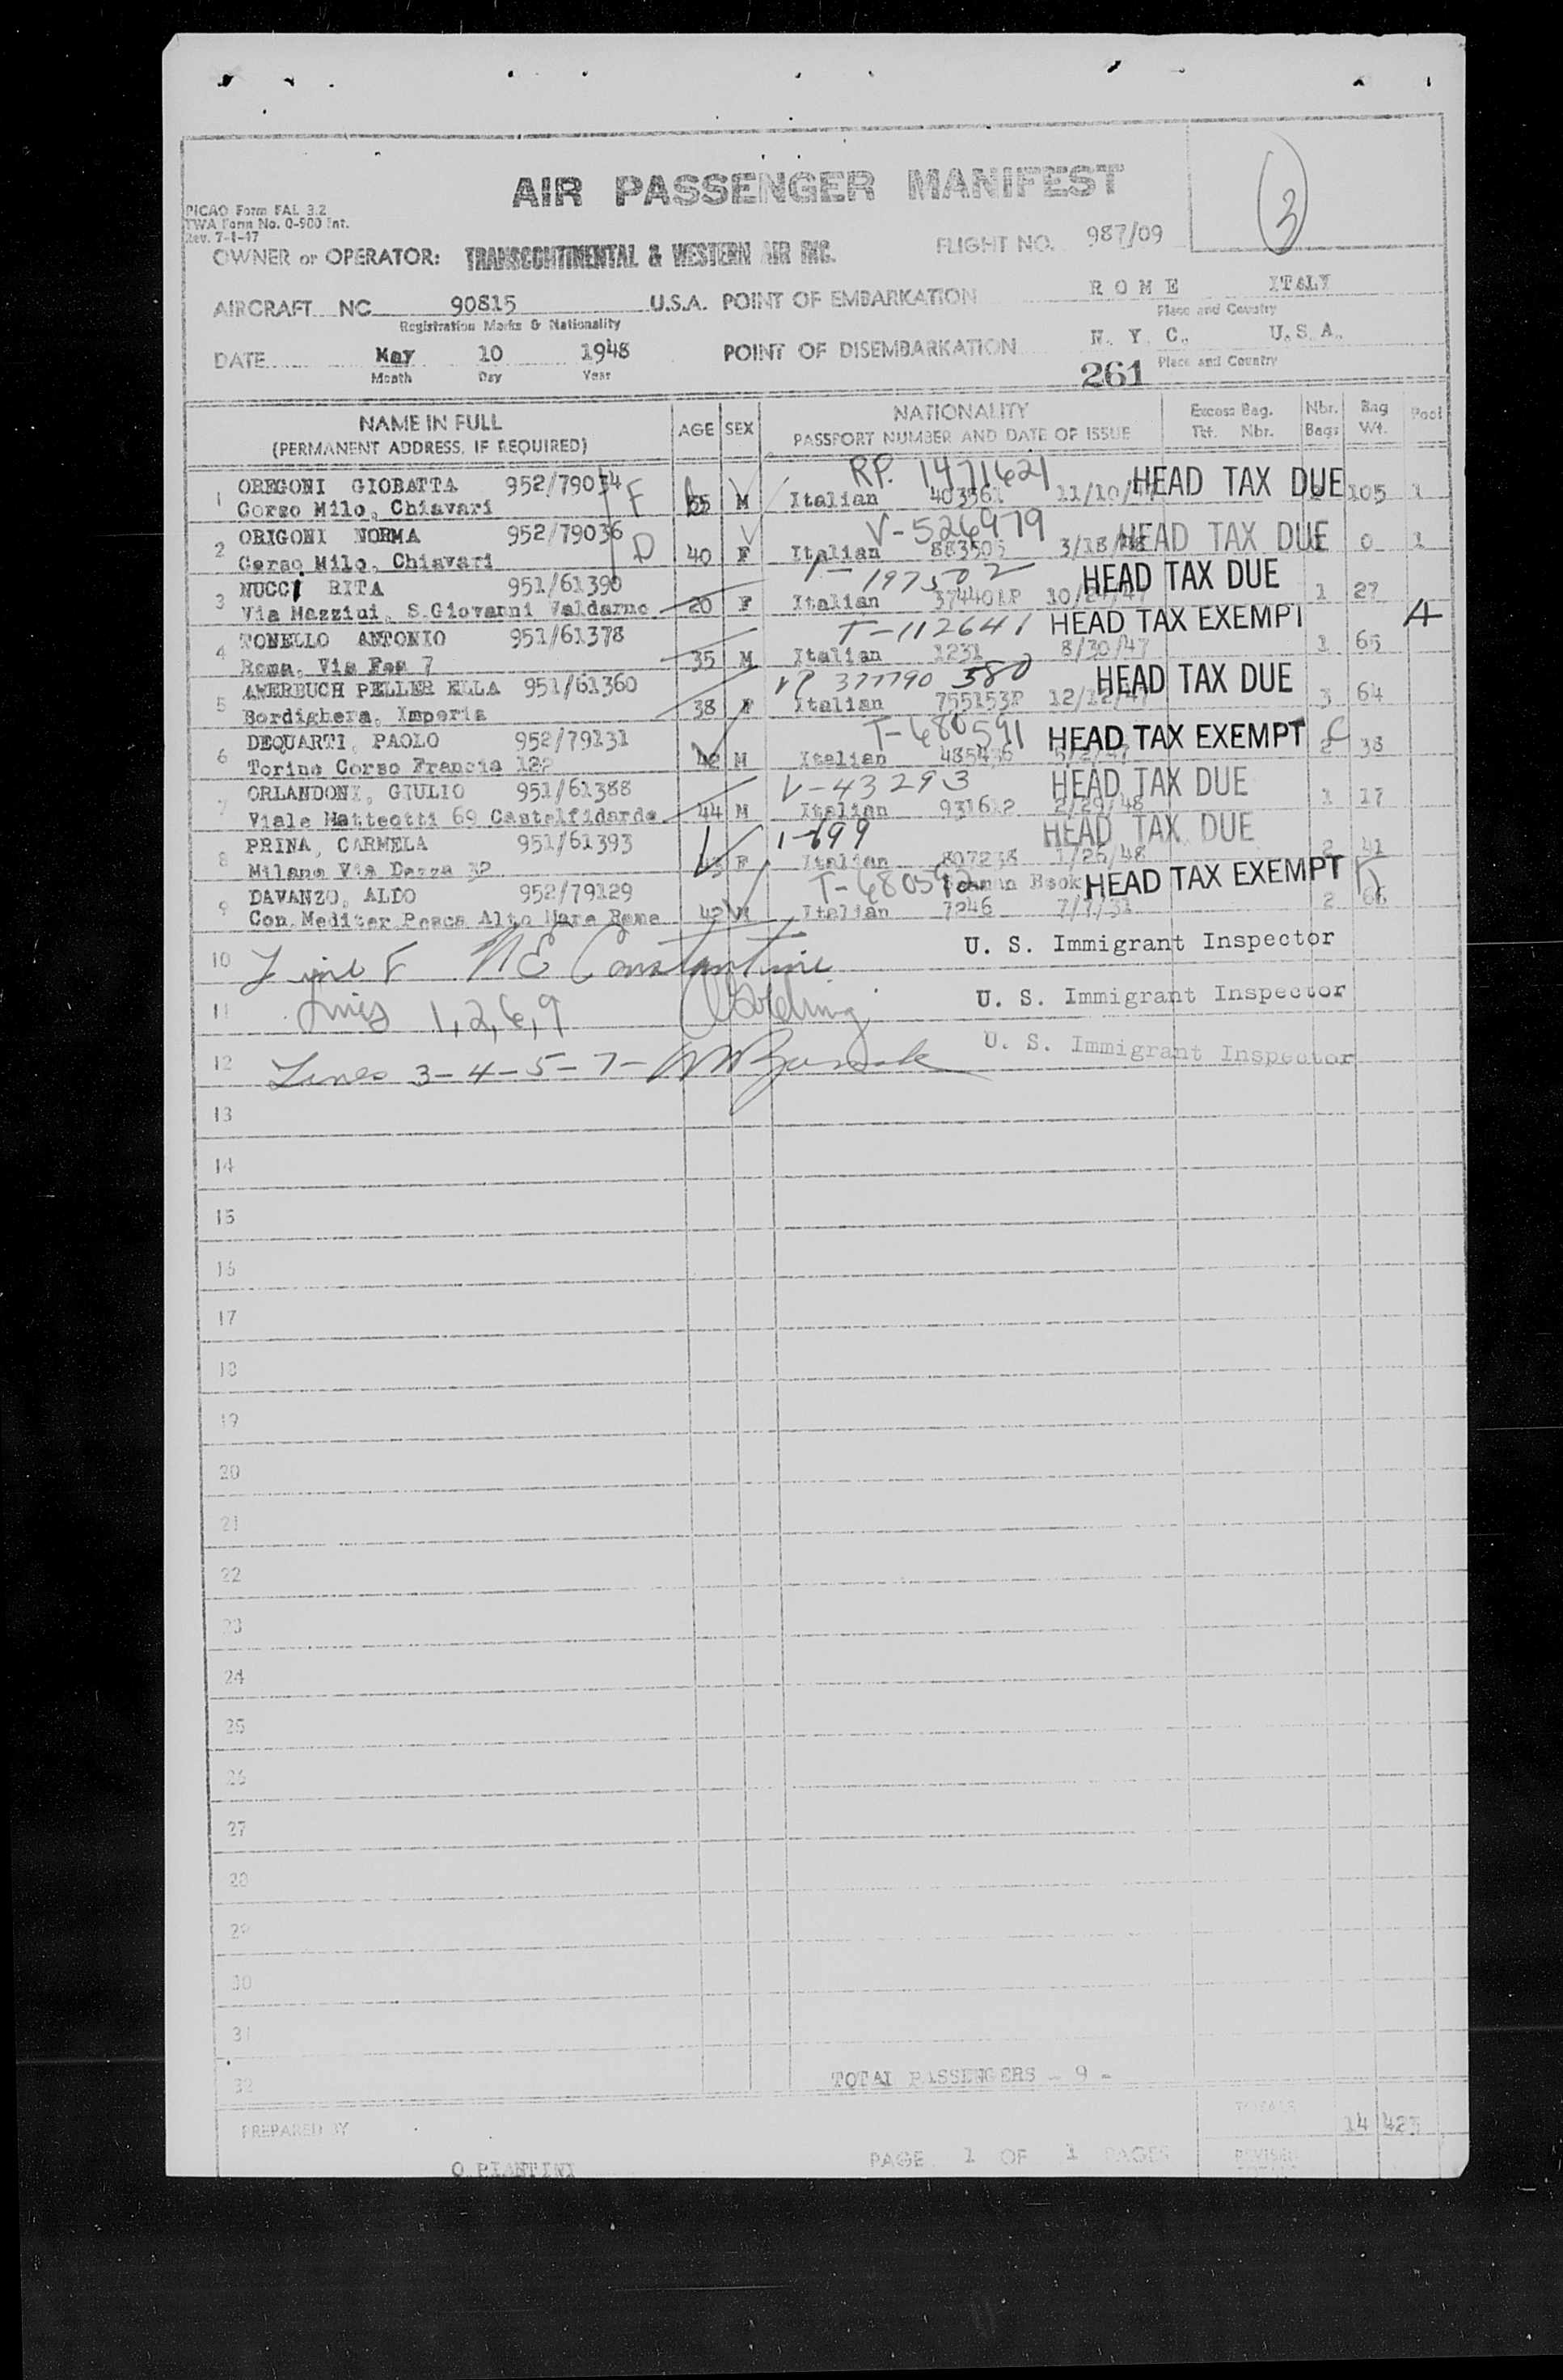 3
AIR PASSENGER MANIFEST
PICAO Form FAL 3.2
TWA Form No. 0-900 Int.
Rev. 7-1-47
OWNER or OPERATOR: TRANSCONTINENTAL & WESTERN AIR INC. FLIGHT NO. 987/09
AIRCRAFT NC 90815 U.S.A. POINT OF EMBARKATION ROME ITALY
Registration Marks & Nationality Place and Country
DATE May 10 1948 POINT OF DISEMBARKATION N. Y. C., U.S.A.
Month Day Year 261 Place and Country
NAME IN FULL AGE SEX NATIONALITY Excess Bag. Nbr. Bag Pool
(PERMANENT ADDRESS, IF REQUIRED) PASSPORT NUMBER AND DATE OF ISSUE Tkt. Nbr. Bags Wt.
RP. 1471621
1 OREGONI GIOBATTA 952/79034 F HEAD TAX DUE
Corso Milo, Chiavari 65 M Italian 403561 11/10/47 105 1
V-526979
2 ORIGONI NORMA 952/79036 D HEAD TAX DUE
Corso Milo, Chiavari 40 F Italian 883505 3/18/48 0 1
197502
3 NUCCI RITA 951/61390 HEAD TAX DUE
Via Mazzini, S.Giovanni Valdarno 20 F Italian 374401P 1 27
T-112641
4 TONELLO ANTONIO 951/61378 HEAD TAX EXEMPT A
Roma, Via Fea 7 35 M Italian 1231 8/30/47 1 65
VP 377790 380
5 AWERBUCH PELLER ELLA 951/61360 HEAD TAX DUE
Bordighera, Imperia 38 F Italian 755153P 12/12/47 3 64
T-680591
6 DEQUARTI, PAOLO 952/79131 HEAD TAX EXEMPT C
Torino Corso Francia 122 42 M Italian 485436 5/2/47 2 38
V-43293
7 ORLANDONI, GIULIO 951/61388 HEAD TAX DUE
Viale Matteotti 69 Castelfidardo 44 M Italian 931612 2/29/48 1 17
1-699
8 PRINA, CARMELA 951/61393 HEAD TAX DUE
Milano Via Dezza 32 43 F Italian 807238 1/26/48 2 41
T-680592 Seaman Book
9 DAVANZO, ALDO 952/79129 HEAD TAX EXEMPT D
Con.Mediter Pesca Alto Mare Rome 42 M Italian 7246 7/7/31 2 66
10 Line 8 N E Constantine U. S. Immigrant Inspector
11 Lines 1,2,6,9 U. S. Immigrant Inspector
12 Lines 3-4-5-7- U. S. Immigrant Inspector
13
14
15
16
17
18
19
20
21
22
23
24
25
26
27
28
29
30
31
32 TOTAL PASSENGERS - 9 -
PREPARED BY TOTALS 14 423
O PIANTINI PAGE 1 OF 1 PAGES REVISED